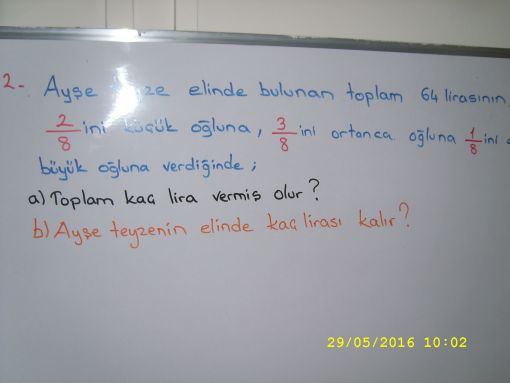 2- Ayşe teyze elinde bulunan toplam 64 lirasının
2/8 ini küçük oğluna, 3/8 ini ortanca oğluna 1/8 ini
büyük oğluna verdiğinde;
a) Toplam kaç lira vermiş olur?
b) Ayşe teyzenin elinde kaç lirası kalır?
29/05/2016 10:02